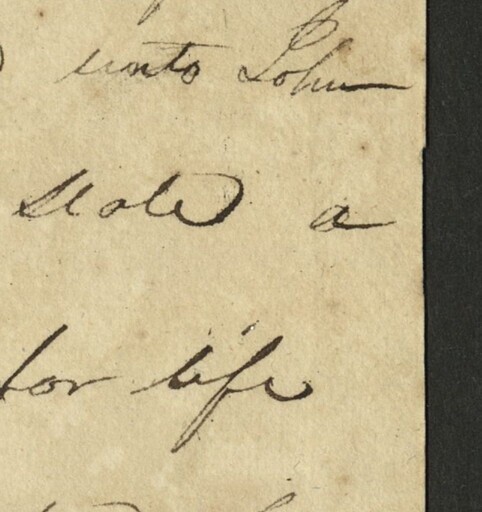 unto John
State a
for life